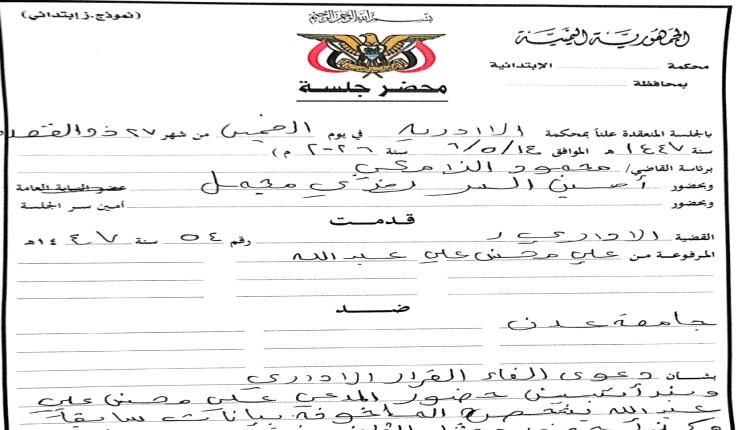 (نموذج.ز إبتدائي)
بسم الله الرحمن الرحيم
الجمهورية اليمنية
محكمة الإبتدائية
بمحافظة
محضر جلسة
بالجلسة المنعقدة علناً بمحكمة الادارية في يوم الخميس من شهر ٢٧ ذو القعدة
سنة ١٤٤٧ هـ الموافق ١٤/٥/ سنة ٢٠٢٦ م)
برئاسة القاضي/ محمود
وبحضور أمين السر عضو النيابة العامة
وبحضور أمين سر الجلسة
قدمت
القضية الادارية رقم ٥٤ سنة ١٤٤٧هـ
المرفوعة من علي محسن علي عبدالله
ضد
جامعة عدن
بشأن دعوى الغاء القرار الاداري
حضور المدعي علي محسن علي
عبدالله بياناته سابقاً